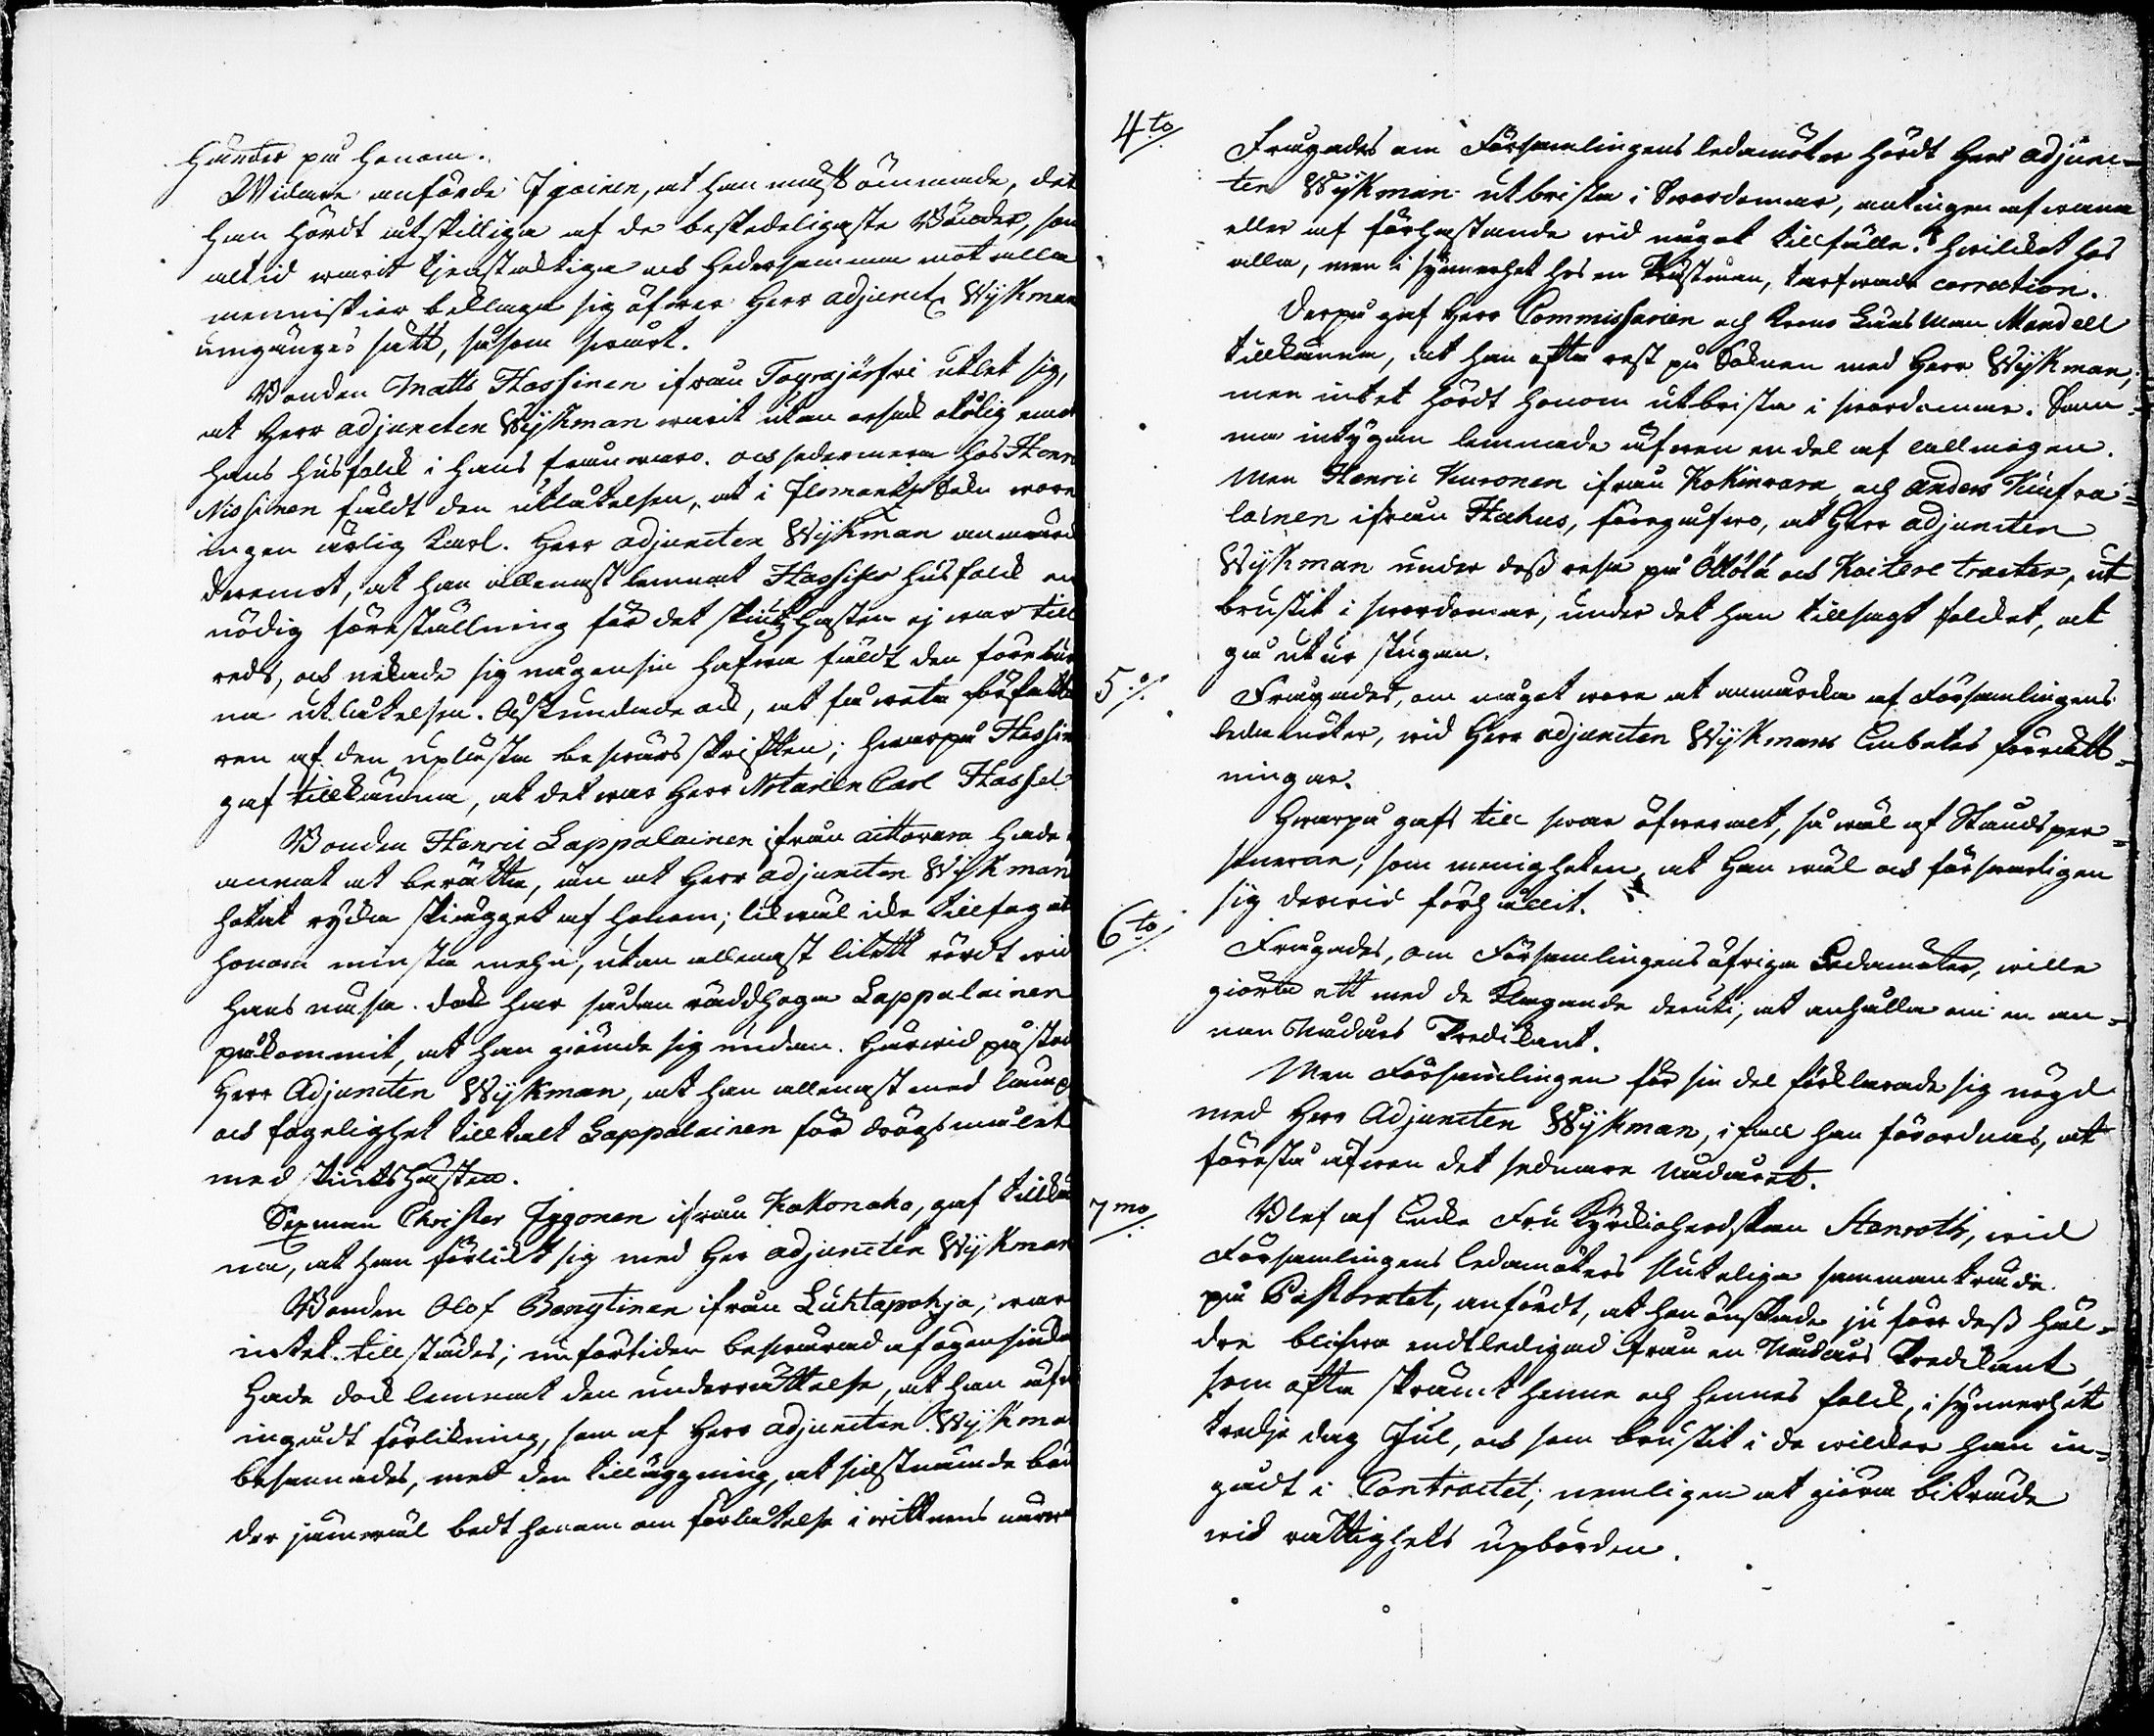 händer på honom.
Widare anförde Igoinen, at han måst ömmade, det
han hördt åtskilliga af de beskedeligaste Bönder, som
altid warit tjenstaktige och hedersamma mot alla
menniskior beklaga sig öfwer Herr adjunct. Wijkmans
umgänges sätt, såsom swårt.
Bonden Matts Hassinen ifrån Tograjärfwi utlet sig,
at Herr adjuncten Wijkman warit utan orsak olålig emot
hans husfolk i hans frånwaro. och sedermera hos Henric
Nissinen fäldt den utlåtelsen, at i Ilomants Sokn wore
ingen ärlig karl. Herr adjuncten Wijkman anmärkte
deremot, at han allenast lemnat Hassises husfolk en
nödig föreställning för det skiutshästen ej war till
reds, och nekade sig någonsin hafwa fäldt den föreburna
utlåtelsen. Åstundade ock, at få weta författa
ren af den uplästa beswärs skriften; hwarpå Hassinen
gaf tillkänna, at det war Herr Notarien Carl Hassel
Bonden Henric Lappalainen ifrån aittovara hade
annat at berätta, än at Herr adjuncten Wijkman
hotat rycka skiägget af honom; likwäl icke tillfogat
honom minsta mehn, utan allenast litett rördt wid
hans näsa. dock har sådan räddhoga Lappalainen
påkommit, at han giömde sig undan. Härwid påstod
Herr Adjuncten Wijkman, at han allenast med lämp
och fogelighet tilltalt Lappalainen för drögsmålet
med skiutshästen.
Sexman Christer Iggonen ifrån Kakonaho, gaf tillkän
na, at han förlikt sig med Her adjuncten Wijkman
Bonden Olof Bonytinen ifrån Luhtapohja, war
intet tillstädes; emförtiden beswärad af ögonsiuka
hade dock lemnat den underrättelse, at han äfwen
ingådt förlikning, som af Herr adjuncten Wijkman
besannades, med den tilläggning, at sidstnämde bon
der jämwäl bedt honom om förlåtelse i wittnens närwaro
4to/. Frågades om Församlingens ledamöter hördt Herr adjunc-
ten Wijkman utbrista i Swordomar, antingen af wana
eller af förhastande wid något tillfälle. hwilket hos
alla, men i synnerhet hos en Prästman, tarfwade correction.
Derpå gaf Herr Commissarien och Krono Länsman Mandell
tillkänna, at han ofta rest på Soknen med Herr Wijkman,
men intet hördt honom utbrista i swordomar. Sam-
ma intygan lemnade äfwen en del af allmogen.
Men Henric Kuronen ifrån Kokinvara och anders Kinfra-
lainen ifrån Hakus, föregåfwo, at Herr adjuncten
Wijkman under dess resa på Öllölä och Koitere tracter, ut
brustit i swordomar, under det han tillsagt folcket, at
gå utur stugan.
5o/. Frågades, om något wore at anmärcka af Församlingens
ledamöter, wid Herr adjuncten Wijkmans Embetes förrätt-
ningar.
Hwarpå gafs till swar öfweralt, så wäl af Ståndsper-
sonerne, som menigheten, at Han wäl och förswarligen
sig derwid förhållit.
6to/. Frågades, om Församlingens öfriga Ledamöter, wille
giöra ett med de klagande deruti, at anhålla om en an-
nan Nådårs Predikant.
Men Församlingen för sin del förklarade sig nögd
med Herr Adjuncten Wijkman, i fall han förordnas, at
förestå äfwen det sednare nådåret.
7mo/. Blef af Encke Fru Kyrckioherdskan Stenroth, wid
Församlingens ledamöters slutelige sammanträde
på Pastoratet, anfördt, at hon önskade ju förr dess häl-
dre blifwa entledigad ifrån en Nådårs Predikant
som ofta skrämt henne och hennes folck, i synnerhet
tredje dag Jul, och som brustit i de wilckor han in-
gådt i Contractet; nemligen at giöra biträde
wid rättighets upbörden.